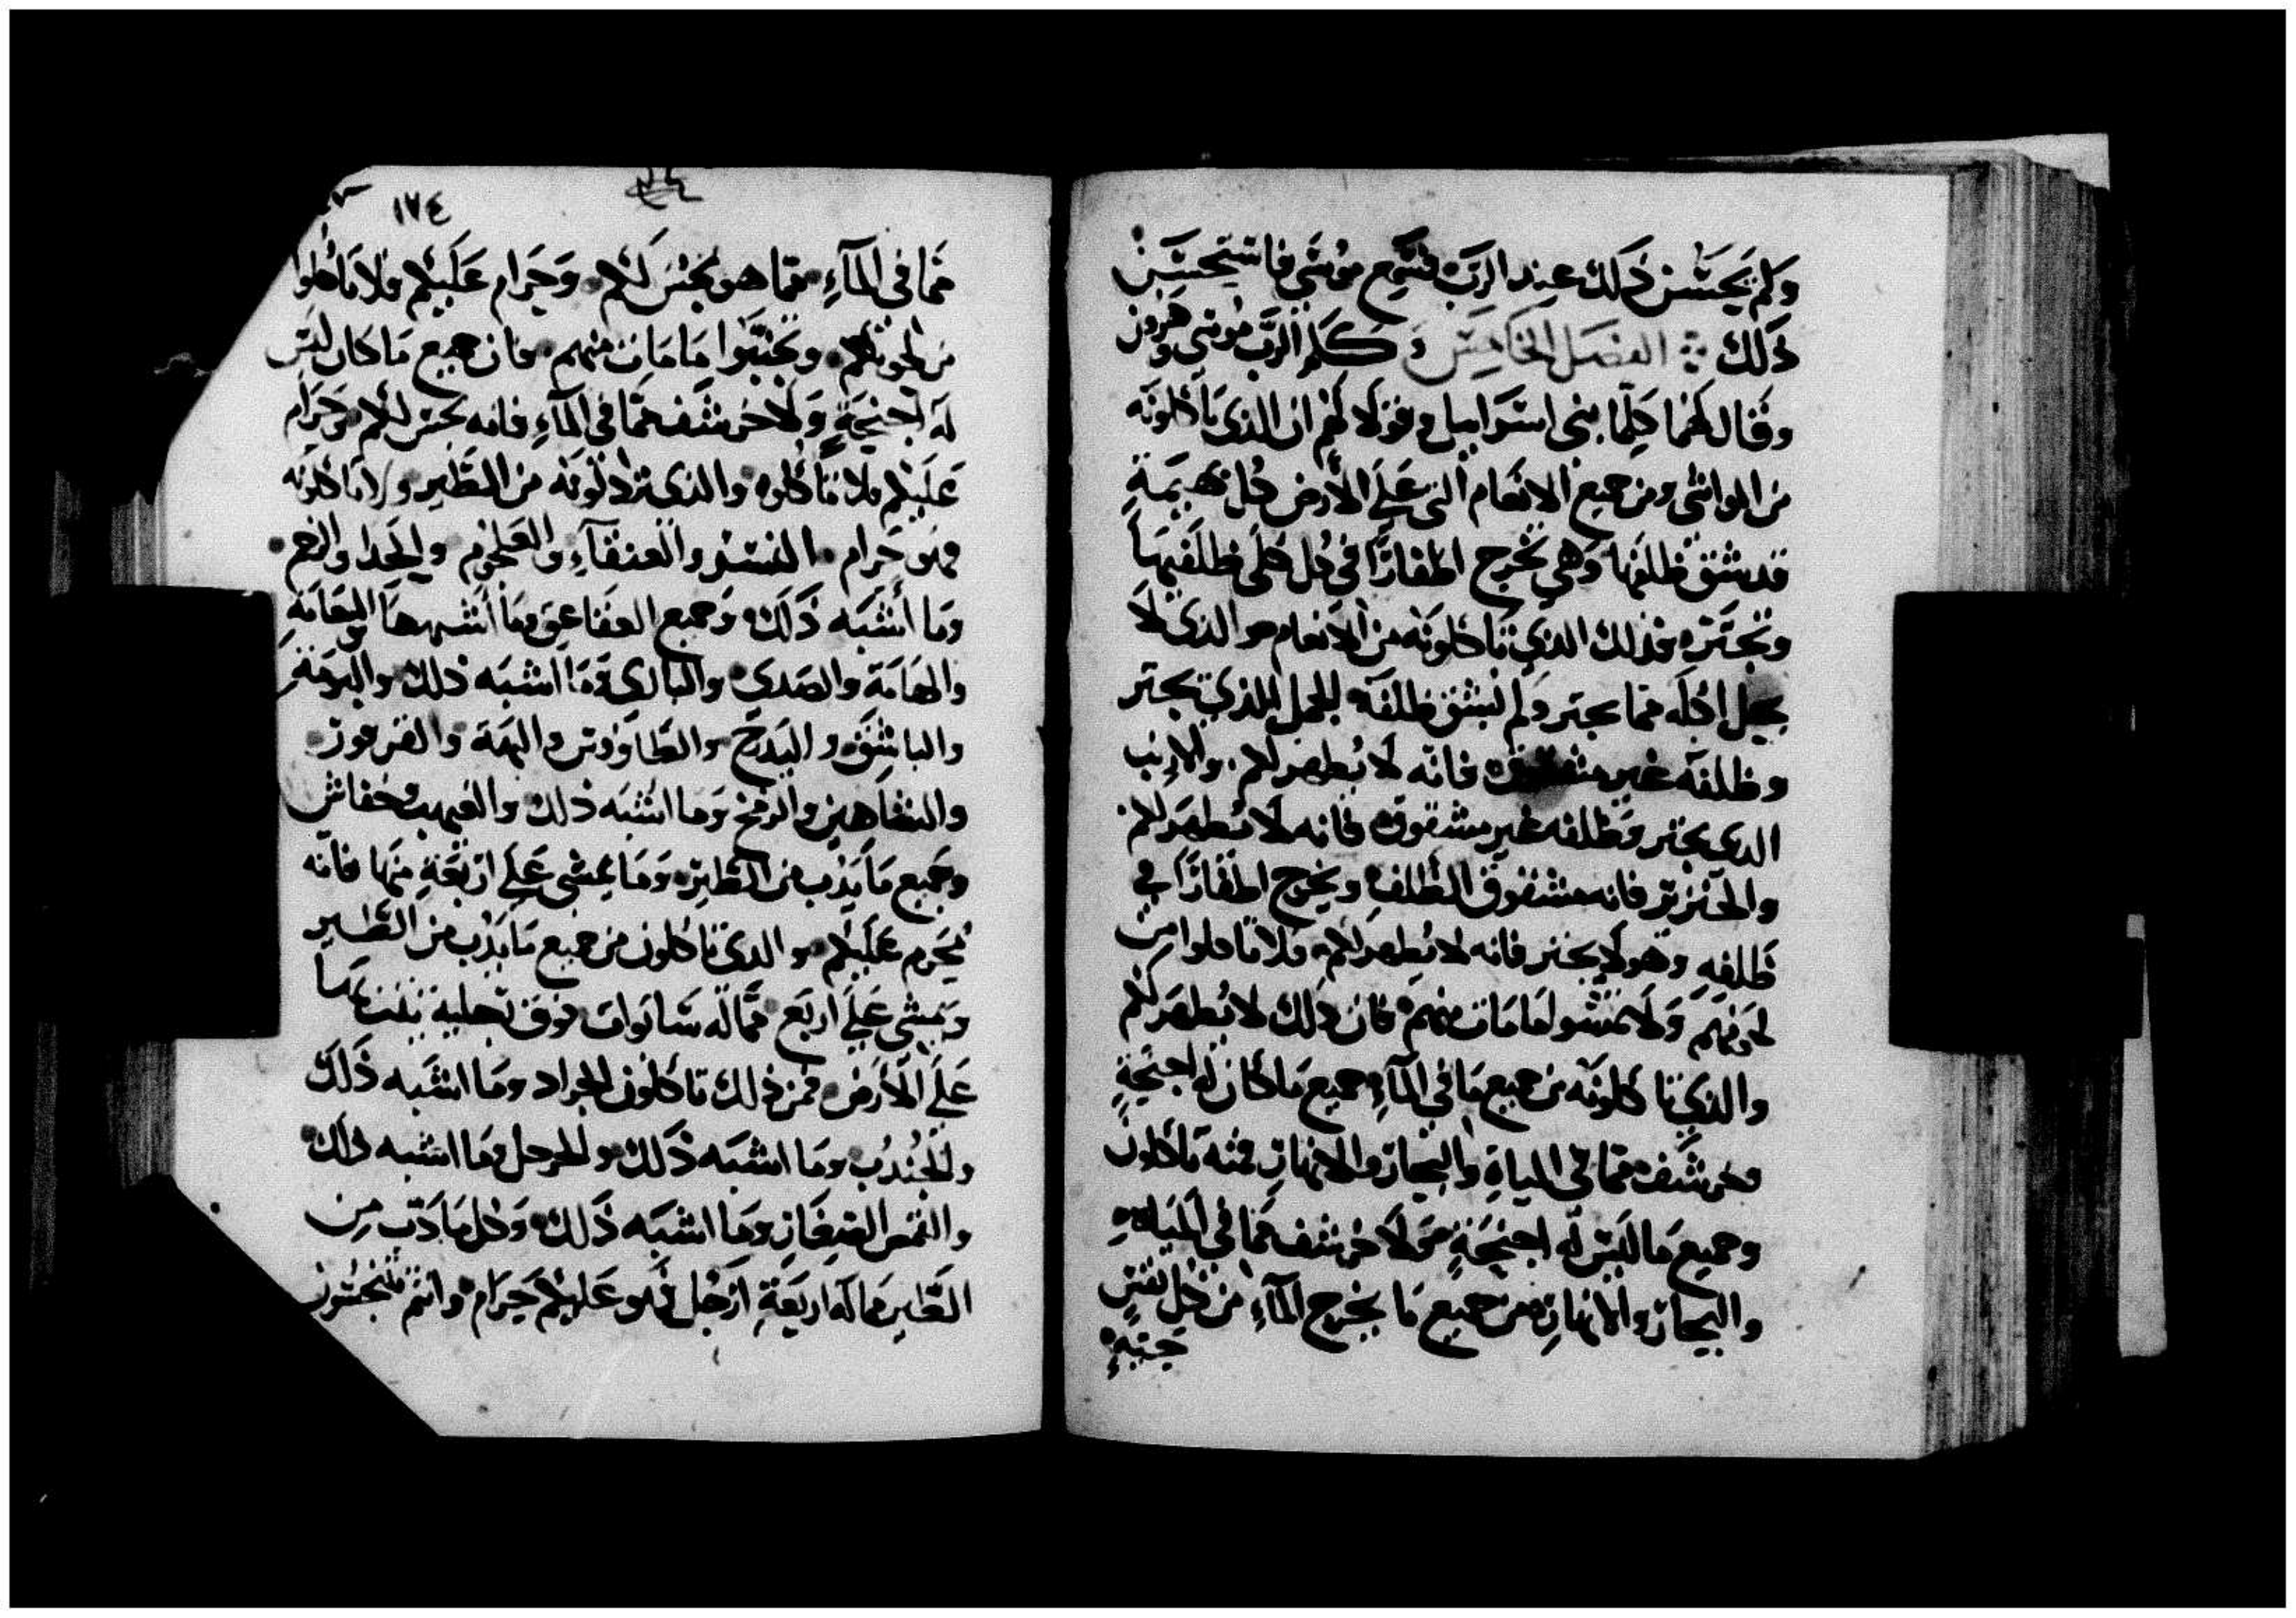 ولم يحسن ذلك عند الرب فسمع موسى فاستحسن
ذلك الفصل الخامس كلم الرب موسى وهرون
وقال لهما كلما بني اسرايل وقولا لهم ان الذي تاكلونه
من المواشي ومن جميع الانعام التي على الأرض كل بهيمة
قد شق ظلفها وهي تخرج اظفارًا في كل ظلفيها
وتجتر فذلك الذي تاكلونه من الانعام والذي لا
يحل اكله مما يجتر ولم ينشق ظلفه الجمل الذي يجتر
وظلفه غير مشقوق فانه لا يطهر لكم والارنب
الذي يجتر وظلفه غير مشقوق فانه لا يطهر لكم
والخنزير فانه مشقوق الظلف ويخرج اظفارًا في
ظلفه وهو لا يجتر فانه لا يطهر لكم فلا تاكلوا من
لحومهم ولا تمسوا ما مات منهم فان ذلك لا يطهر لكم
والذي تاكلونه من جميع ما في المآءِ جميع ما كان له اجنحةٍ
وخرشف مما في المياة والبحار والانهار فمنه تاكلون
وجميع ما ليس له اجنحةٍ ولا خرشف مما في المياه
والبحار والانهار من جميع ما يخرج المآءِ من كل نفسٍ
حيةٍ
١٧٤
مما في المآءِ مما هو نجس لكم وحرام عليكم فلا تاكلوا
من لحومهم وتجنبوا ما مات منهم فان جميع ما كان ليس
له اجنحةٍ ولا خرشف مما في المآءِ فانه نجس لكم وحرام
عليكم فلا تاكلوه والذي تردلونه من الطير ولا تاكلونه
فهو حرام النسر والعنقآءِ والحدا والرخم
وما أشبه ذلك وجميع العقاعق وما اشبهها
والهامة والصدى والبازي وما اشبه ذلك
والباشق والطاووس
والشاهين والرخ وما اشبه ذلك وخفاش
وجميع ما يدب من الطير وما يمشي على اربعةٍ منها فانه
يحرم عليكم والذي تاكلون من جميع ما يدب من الطير
ويمشي على اربع مما له ساقوان فوق رجليه
على الأرض فمن ذلك تاكلون الجراد وما اشبه ذلك
والجندب وما اشبه ذلك وما اشبه ذلك
وما اشبه ذلك وكل ما دب من
الطير ما له اربعة ارجل فهو عليكم حرام وانتم تتنجسون